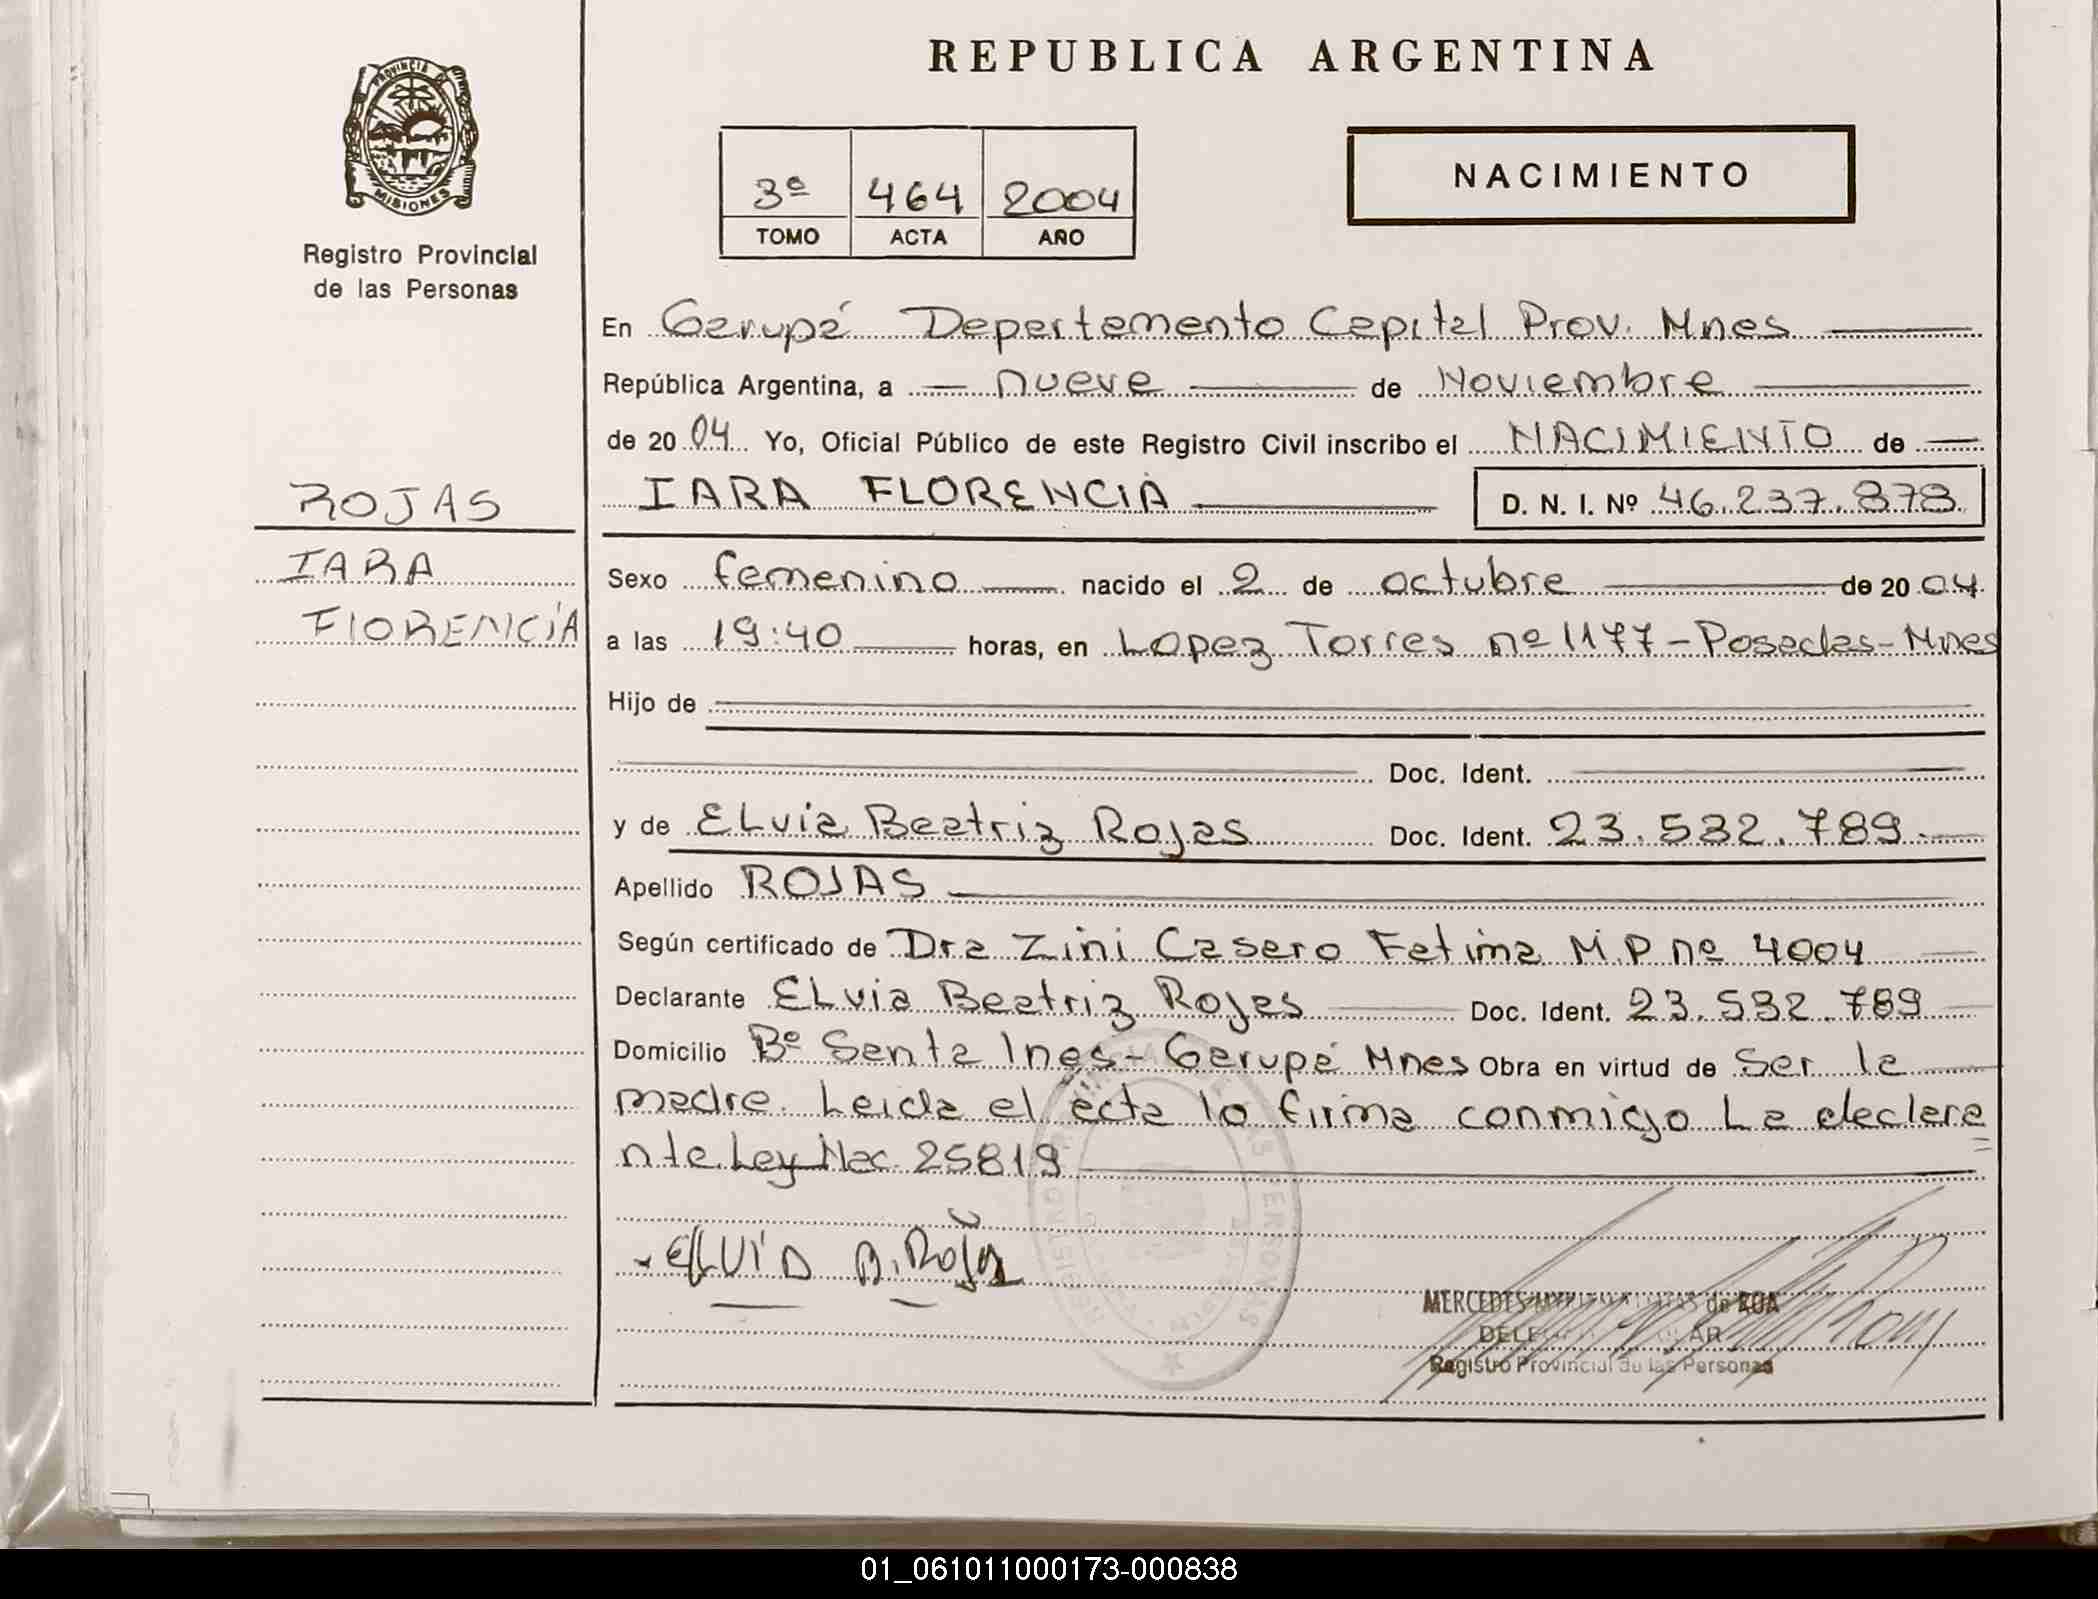 REPUBLICA ARGENTINA
PROVINCIA DE
MISIONES
Registro Provincial
de las Personas
3º 464 2004
TOMO ACTA AÑO
NACIMIENTO
En Garupá Departamento Capital Prov. Mnes
República Argentina, a nueve de Noviembre
de 2004 Yo, Oficial Público de este Registro Civil inscribo el NACIMIENTO de
IARA FLORENCIA D. N. I. Nº 46.237.878
ROJAS
IARA
FlORENCIA
Sexo femenino nacido el 2 de octubre de 2004
a las 19:40 horas, en Lopez Torres nº 1177-Posadas-Mnes
Hijo de
Doc. Ident.
y de ELvia Beatriz Rojas Doc. Ident. 23.532.789
Apellido ROJAS
Según certificado de Dra Zini Casero Fatima M.P nº 4004
Declarante ELvia Beatriz Rojas Doc. Ident. 23.532.789
Domicilio Bº Santa Ines-Garupá Mnes Obra en virtud de ser la
madre. Leida el acta lo firma conmigo La declara
nte Ley Nac. 25819
ELVIA B. Rojas
MERCEDES de ROA
Registro Provincial de las Personas
01_061011000173-000838